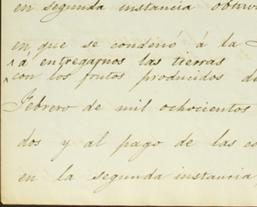 en segunda instancia
en que se condenó á la
á entregarnos las tierras
con los frutos producidos
Febrero de mil ochocientos
dos y al pago de las
en la segunda instancia